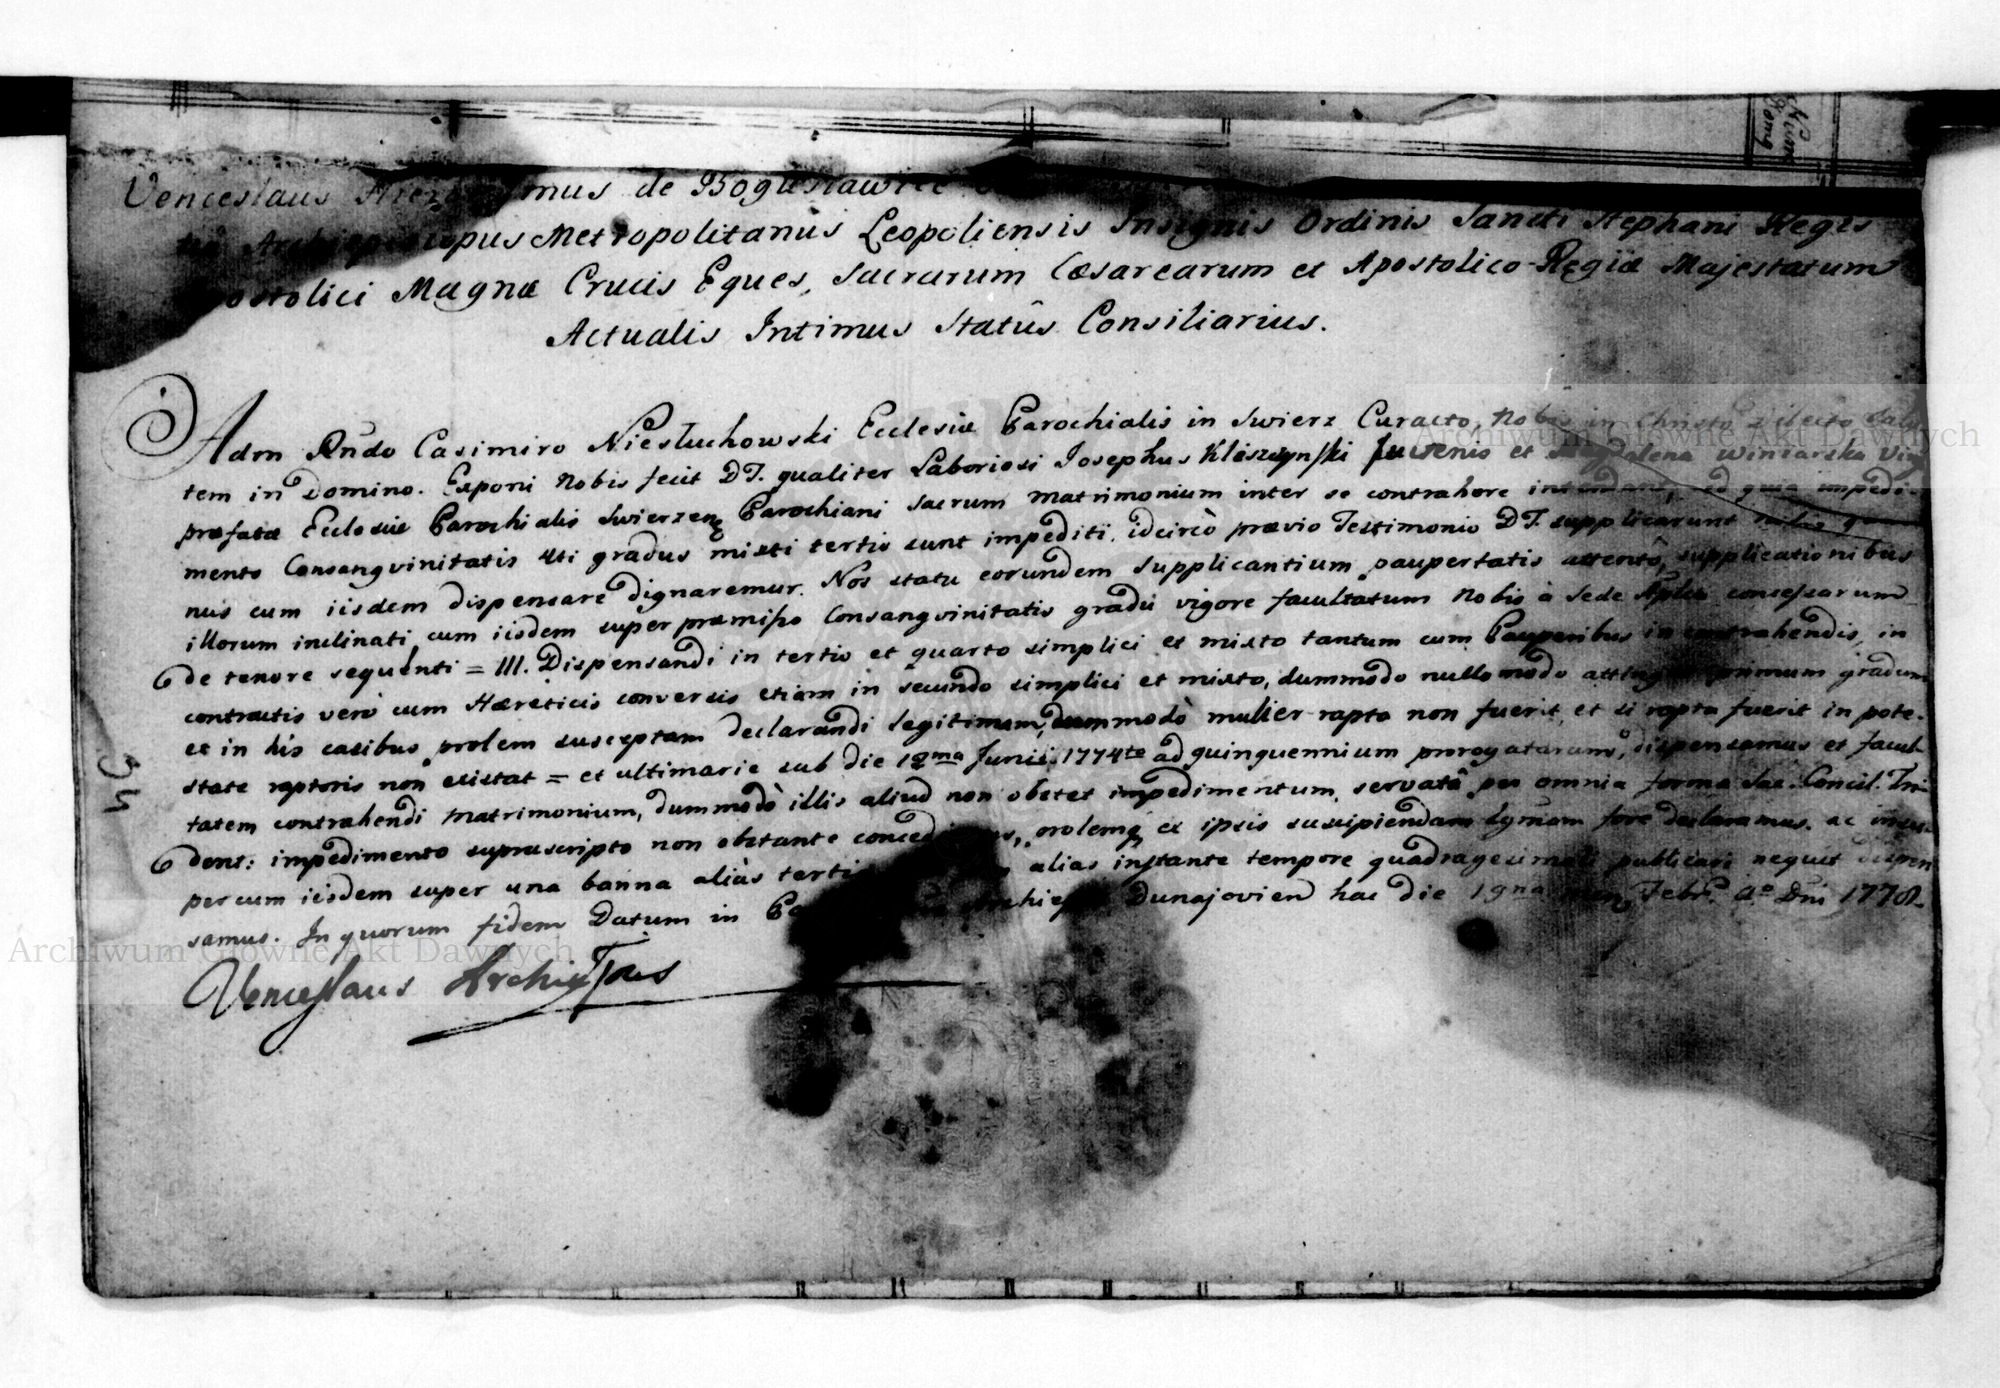 Venceslaus Hieronymus de Bogusławice
Archiepiscopus Metropolitanus Leopoliensis Insignis Ordinis Sancti Stephani Regis
Apostolici Magnæ Crucis Eques, Sacrarum Cæsarearum et Apostolico-Regiæ Majestatum
Actualis Intimus Statûs Consiliarius.
Adm Rndo Casimiro Niesłuchowski Ecclesiæ Parochialis in Swierz Curato, Nobis in Christo Dilecto Salu
tem in Domino. Exponi Nobis fecit DT. qualiter Laboriosi Josephus Kleszczynski Juvenis et Magdalena Winiarska Vir
præfatæ Ecclesiæ Parochialis Swierzen Parochiani sacrum matrimonium inter se contrahere intendant, ed quia impedi-
mento Consangvinitatis 4ti gradus mixti tertio sunt impediti. idcircò prævio Testimonio DT. supplicarunt nobis qua
nus cum iisdem dispensare dignaremur. Nos statu eorundem supplicantium paupertatis attentô, supplicationibus
illorum inclinati, cum iisdem super præmisso Consangvinitatis gradu vigore facultatum Nobis à Sede Aplica concessarum
de tenore sequenti = III. Dispensandi in tertio et quarto simplici et mixto tantum cum Pauperibus in contrahendis, in
contractis verò cum Hæreticis conversis etiam in secundo simplici et mixto, dummodo nullo modo attingat primum gradum
et in his casibus prolem susceptam declarandi legitimam; dummodò mulier rapta non fuerit, et si rapta fuerit in pote-
state raptoris non existat = et ultimarie sub die 12ma Junii 1774te ad quinquennium prorogatarum, dispensamus et facul-
tatem contrahendi matrimonium, dummodò illis aliud non obstet impedimentum, servatâ per omnia forma Sac. Concil. Tri-
dent: impedimento suprascripto non obstante concedimus, prolemq ex ipsis suscipiendam Lgtmam fore declaramus. ac insu
per cum iisdem super una banna aliàs tertia alias instante tempore quadragesimali publicari nequit dispen
samus. In quorum fidem Datum in Dunajovien hac die 19na Febr. Ao Dni 1778.
Venceslaus ArchiEppus
34